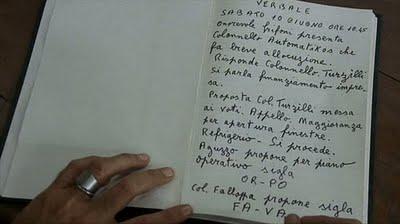 VERBALE
SABATO 10 GIUGNO ORE 10.45
onorevole Grifoni presenta
Colonnello Automatikos che
fa breve allocuzione.
Risponde Colonnello Turzilli
si parla finanziamento impre-
sa.
Proposta Col. Turzilli messa
ai voti. Appello. Maggioranza
per apertura finestre.
Refrigerio - Si procede.
Aguzzo propone per piano
operativo sigla
OR-PO
Col. Falloppa propone sigla
FA-VA